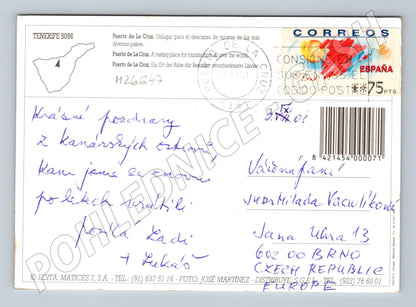 TENERIFE 5056
Puerto de La Cruz. Un lugar para el descanso de turistas de los más diversos países.
Puerto de La Cruz. A resting place for tourists from all over the world.
Puerto de La Cruz. Ein Ort der Ruhe für Reisende verschiedenster Länder.
H26647
CORREOS
ESPAÑA
**75 PTS
CONSIGNE EN
SUS
CODIGO POSTAL
Krásné pozdravy
z Kanárských ostrovů
Kam jsme se znovu
po letech vrátili
posílá Ladi
+ Lukáš
8 421454 000071
Vážená paní
JUDr Milada Vaculíková
Jana Uhra 13
602 00 BRNO
CZECH REPUBLIC
EUROPE
© EDITA: MATICES 7, S.A. - TEL.: (91) 637 51 16 - FOTO: JOSÉ MARTÍNEZ - DISTRIBUYE: S.G.E.I. - TEL.: (922) 76 60 01
POHLEDNICE TOUŠEK